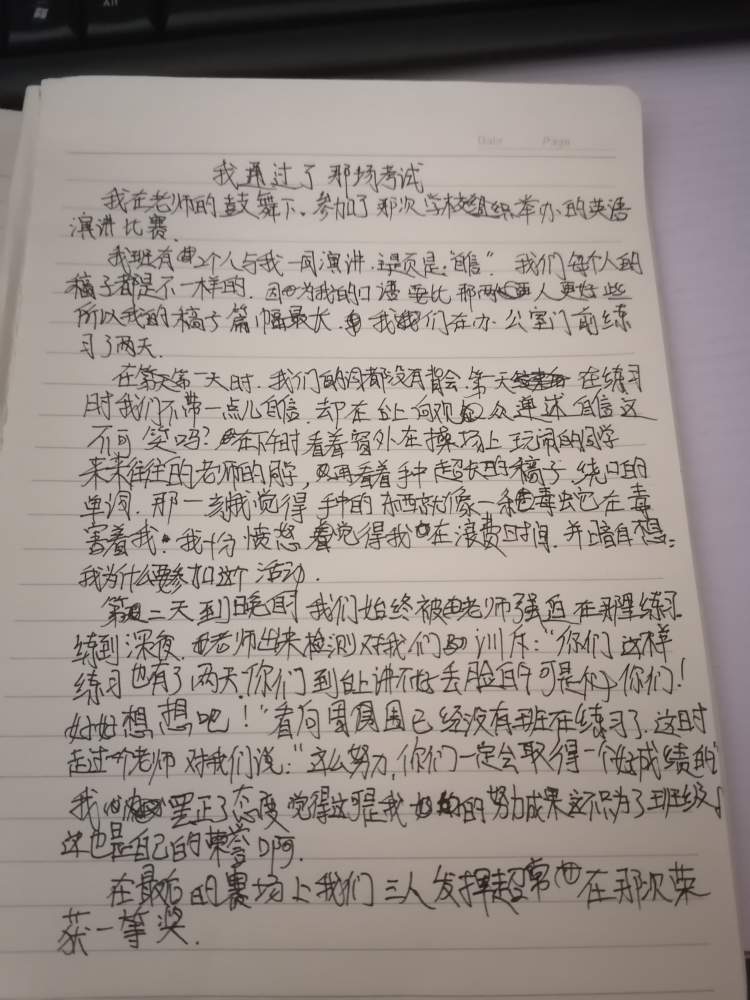 Date Page
我通过了那场考试
我在老师的鼓舞下.参加了那次学校组织举办的英语
演讲比赛.
我班有2个人与我一同演讲.主题是:"自信".我们每个人的
稿子都是不一样的.因为我的口语要比那两人更好些
所以我的稿子篇幅最大.我们在办公室门前练
习了两天.
在第一天时.我们的词都没有背会.第一天在练习
时我们不带一点儿自信.却在台上向观众讲述自信这
不可笑吗?在下午时看着窗外在操场上玩闹的同学
来来往往的老师的同学,再看着手中超长的稿子.绕口的
单词.那一刻我觉得手中的东西就像一条毒蛇它在毒
害着我.我十分愤怒觉得我在浪费时间.并暗自想:
我为什么要参加这个活动.
第二天到晚时我们始终被老师强迫在那里练习
练到深夜.老师出来检测对我们训斥:"你们这样
练习也有了两天.你们到台上讲不好丢脸的可是你们!
好好想想吧!"看向周围已经没有班在练习了.这时
走过一个老师对我们说:"这么努力,你们一定会取得一个好成绩的"
我罡正了态度觉得这可是我的努力成果这不只为了班级
这也是自己的荣誉啊.
在最后的赛场上我们三人发挥超常在那次荣
获一等奖.